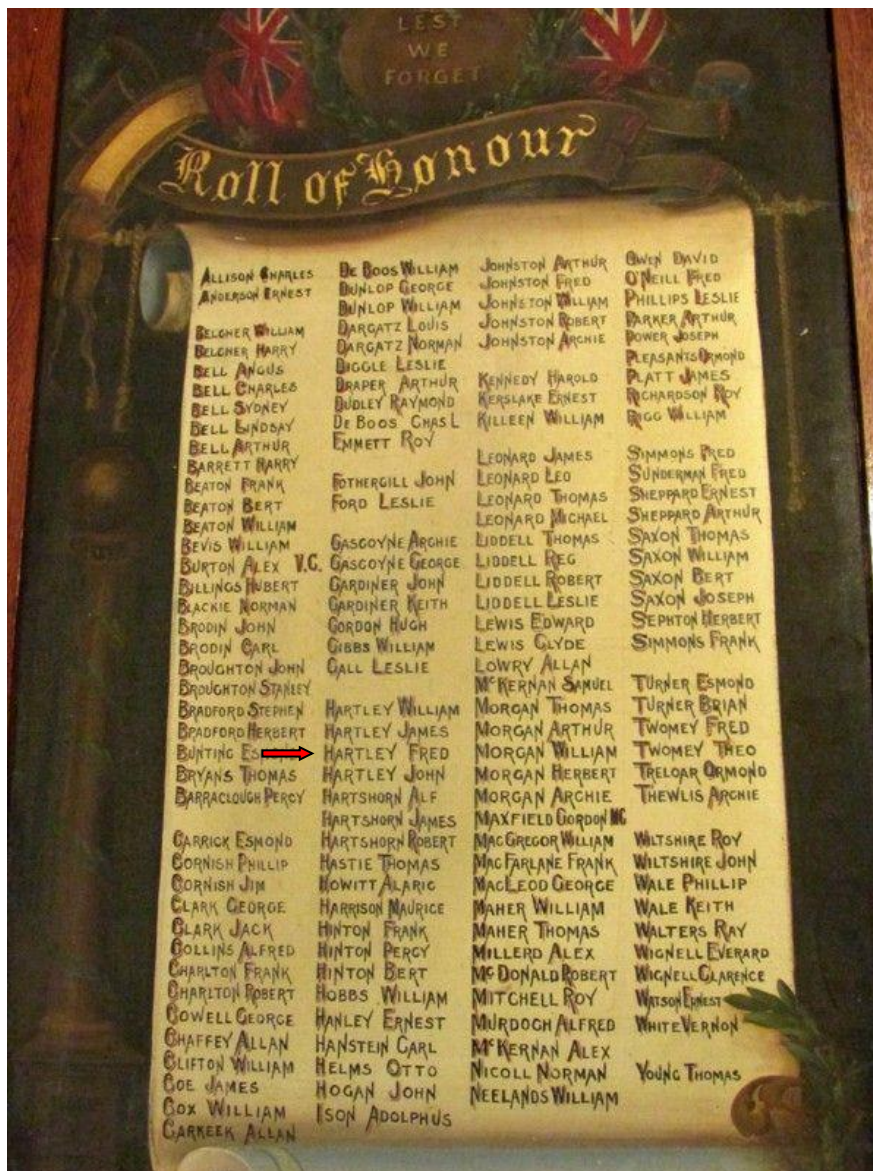 LEST
WE
FORGET
Roll of Honour
ALLISON CHARLES
ANDERSON ERNEST
BELCHER WILLIAM
BELCHER HARRY
BELL ANGUS
BELL CHARLES
BELL SYDNEY
BELL LINDSAY
BELL ARTHUR
BARRETT HARRY
BEATON FRANK
BEATON BERT
BEATON WILLIAM
BEVIS WILLIAM
BURTON ALEX V.C.
BILLINGS HUBERT
BLACKIE NORMAN
BRODIN JOHN
BRODIN CARL
BROUGHTON JOHN
BROUGHTON STANLEY
BRADFORD STEPHEN
BRADFORD HERBERT
BUNTING
BRYANS THOMAS
BARRACLOUGH PERCY
CARRICK ESMOND
CORNISH PHILLIP
CORNISH JIM
CLARK GEORGE
CLARK JACK
COLLINS ALFRED
CHARLTON FRANK
CHARLTON ROBERT
COWELL GEORGE
CHAFFEY ALLAN
CLIFTON WILLIAM
COE JAMES
COX WILLIAM
CARKEEK ALLAN
DE BOOS WILLIAM
DUNLOP GEORGE
DUNLOP WILLIAM
DARGATZ LOUIS
DARGATZ NORMAN
DIGGLE LESLIE
DRAPER ARTHUR
DUDLEY RAYMOND
DE BOOS CHAS L
EMMETT ROY
FOTHERGILL JOHN
FORD LESLIE
GASCOYNE ARCHIE
GASCOYNE GEORGE
GARDINER JOHN
GARDINER KEITH
GORDON HUGH
GIBBS WILLIAM
GALL LESLIE
HARTLEY WILLIAM
HARTLEY JAMES
HARTLEY FRED
HARTLEY JOHN
HARTSHORN ALF
HARTSHORN JAMES
HARTSHORN ROBERT
HASTIE THOMAS
HOWITT ALARIC
HARRISON MAURICE
HINTON FRANK
HINTON PERCY
HINTON BERT
HOBBS WILLIAM
HANLEY ERNEST
HANSTEIN CARL
HELMS OTTO
HOGAN JOHN
ISON ADOLPHUS
JOHNSTON ARTHUR
JOHNSTON FRED
JOHNSTON WILLIAM
JOHNSTON ROBERT
JOHNSTON ARCHIE
KENNEDY HAROLD
KERSLAKE ERNEST
KILLEEN WILLIAM
LEONARD JAMES
LEONARD LEO
LEONARD THOMAS
LEONARD MICHAEL
LIDDELL THOMAS
LIDDELL REG
LIDDELL ROBERT
LIDDELL LESLIE
LEWIS EDWARD
LEWIS CLYDE
LOWRY ALLAN
McKERNAN SAMUEL
MORGAN THOMAS
MORGAN ARTHUR
MORGAN WILLIAM
MORGAN HERBERT
MORGAN ARCHIE
MAXFIELD GORDON MC
MACGREGOR WILLIAM
MACFARLANE FRANK
MACLEOD GEORGE
MAHER WILLIAM
MAHER THOMAS
MILLERD ALEX
McDONALD ROBERT
MITCHELL ROY
MURDOCH ALFRED
McKERNAN ALEX
NICOLL NORMAN
NEELANDS WILLIAM
OWEN DAVID
O'NEILL FRED
PHILLIPS LESLIE
PARKER ARTHUR
POWER JOSEPH
PLEASANTS ORMOND
PLATT JAMES
RICHARDSON ROY
RIGG WILLIAM
SIMMONS FRED
SUNDERMAN FRED
SHEPPARD ERNEST
SHEPPARD ARTHUR
SAXON THOMAS
SAXON WILLIAM
SAXON BERT
SAXON JOSEPH
SEPHTON HERBERT
SIMMONS FRANK
TURNER ESMOND
TURNER BRIAN
TWOMEY FRED
TWOMEY THEO
TRELOAR ORMOND
THEWLIS ARCHIE
WILTSHIRE ROY
WILTSHIRE JOHN
WALE PHILLIP
WALE KEITH
WALTERS RAY
WIGNELL EVERARD
WIGNELL CLARENCE
WATSON ERNEST
WHITE VERNON
YOUNG THOMAS